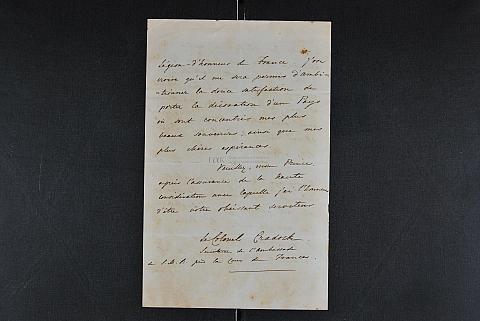 Légion-d'honneur de France, j'ose
croire qu'il me sera permis d'ambi-
-tionner la douce satisfaction de
porter la décoration d'un Pays
où sont concentrés mes plus
beaux souvenirs, ainsi que mes
plus chères espérances.
Veuillez, mon Prince,
agréer l'assurance de la haute
considération avec laquelle j'ai l'honneur
d'être votre obéissant serviteur
le Colonel Cradock
Secrétaire de l'ambassade
de S.M.B. près la Cour de France.